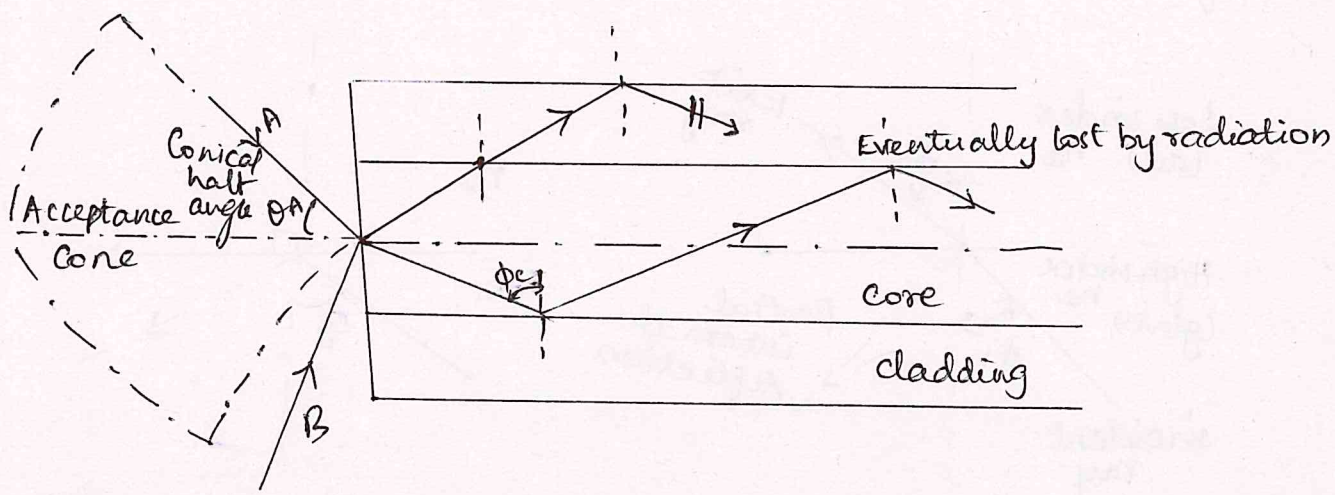 A
Conical
half
angle θA
Acceptance
Cone
B
ϕc
Eventually lost by radiation
core
cladding